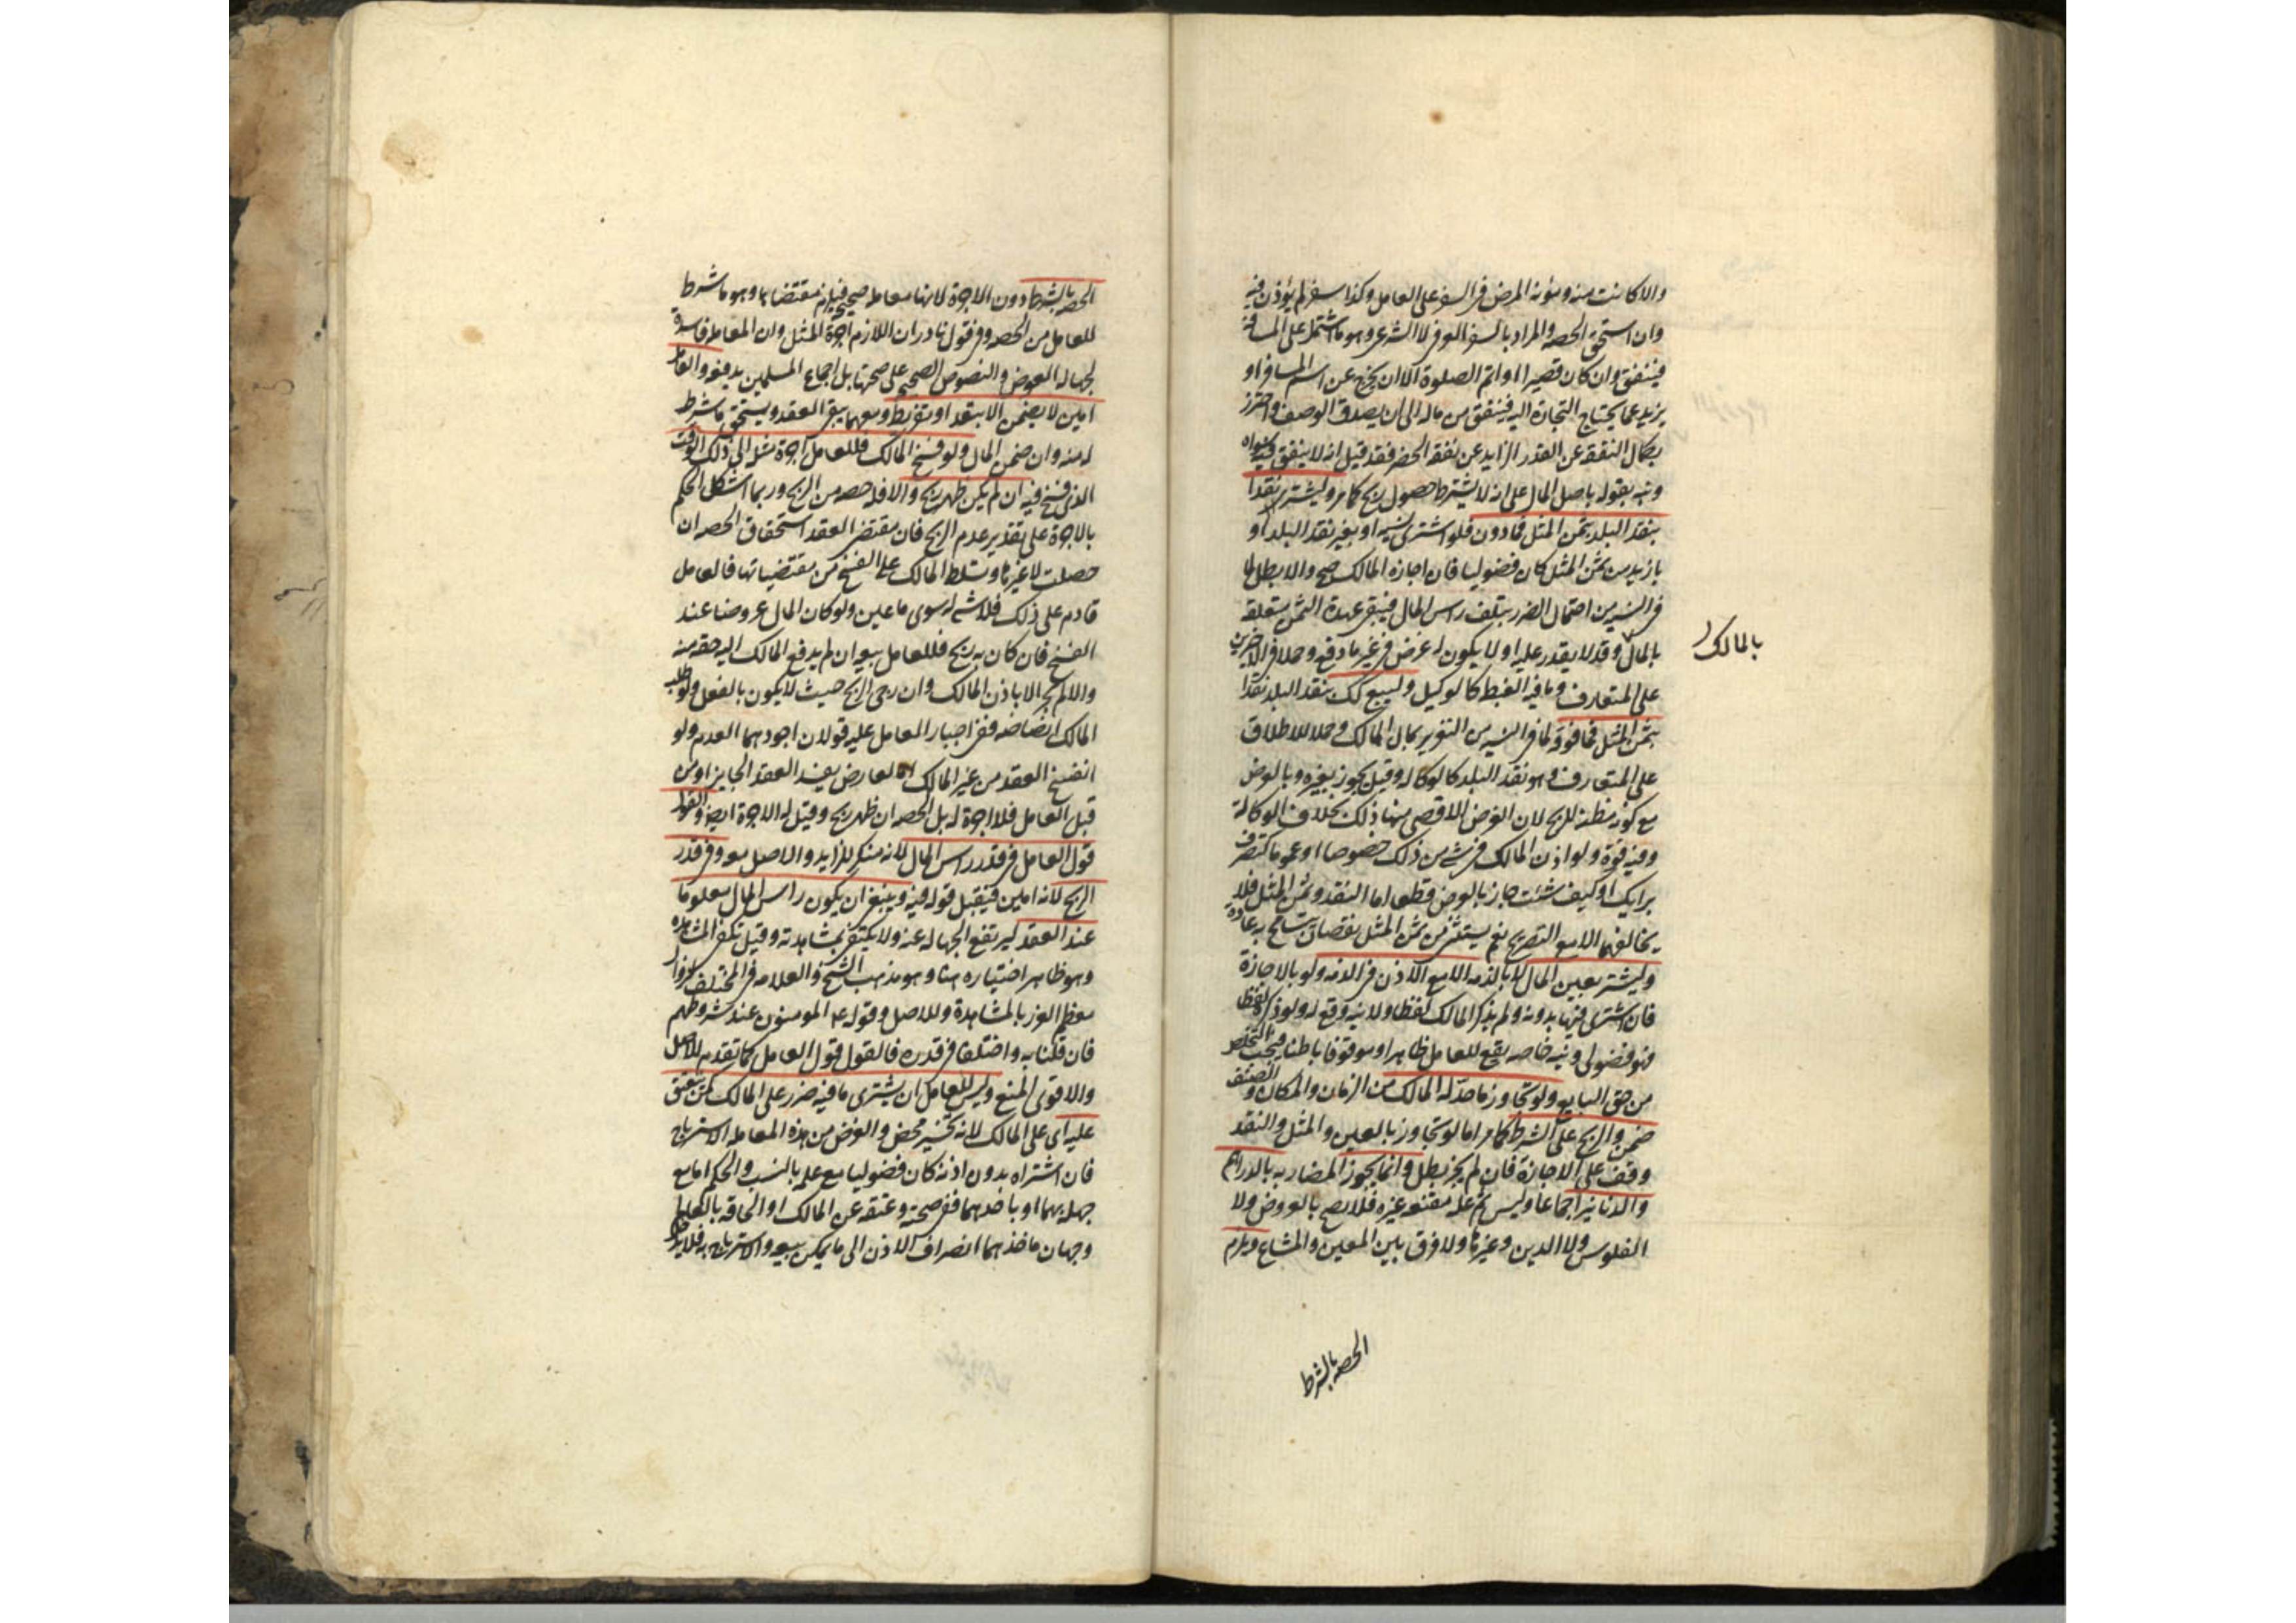 والا كانت منه ومؤنة المرض في السفر على العامل وكذا سفر لم يؤذن فيه
وان استحق الحصه والمراد بالسفر العرفي لا الشرعي وهو ما اشتمل على المسافة
فينفق وان كان قصيرا او اتم الصلوة الا ان يخرج عن اسم المسافر او
يزيد عما يحتاج التجارة اليه فينفق من ماله الى ان يصدق الوصف واحترز
بكمال النفقة عن القدر الزايد عن نفقة الحضر فقد قيل انه لا ينفق فيه سواه
ونبه بقوله باصل المال على انه لا يشترط حصول ربح كما مر وليشتر نقدا
بنقد البلد بثمن المثل فما دون فلو اشترى نسيه او بغير نقد البلد او
بازيد من ثمن المثل كان فضوليا فان اجازه المالك صح والا بطل لما
في النسيه من احتمال الضرر بتلف راس المال فيبقى عهدة الثمن متعلقه
بالمال وقد لا يقدر عليه او لا يكون له غرض في غير ما دفعه وحملا في الاخيرين
بالمالك
على المتعارف وما فيه الغبطه كالوكيل وليبع كك بنقد البلد نقدا
بثمن المثل فما فوقه لما في النسيه من التغرير بمال المالك وحملا للاطلاق
على المتعارف وهو نقد البلد كالوكاله وقيل يجوز بغيره وبالعرض
مع كونه مظنة للربح لان الغرض الاقصى منها ذلك بخلاف الوكالة
وفيه قوة ولو اذن المالك في شئ من ذلك خصوصا او عموما كتصرف
برايك او كيف شئت جاز بالعرض قطعا اما النقد وثمن المثل فلا
يخالفهما الا مع التصريح نعم يستثنى من ثمن المثل نقصان يتسامح به عادة
وليشتر بعين المال لا بالذمه الا مع الاذن في الذمه ولو بالاجازة
فان اشترى فيها بدونه ولم يذكر المالك لفظا ولا نيه وقع له ولو ذكره لفظا
فهو فضولي ونيه خاصه يقع للعامل ظاهرا وموقوفا باطنا فيجب التخلص
من حق البايع ولو تجاوز ما حد له المالك من الزمان والمكان والصنف
ضمن والربح على الشرط كما مر اما لو تجاوز بالعين والمثل والنقد
وقف على الاجازة فان لم يجز بطل وانما يجوز المضاربه بالدراهم
والدنانير اجماعا وليس ثم عله مقنعه غيره فلا يصح بالعروض ولا
الفلوس ولا الدين وغيرها ولا فرق بين المعين والمشاع ويلزم
الحصه بالشرط
الحصه بالشرط دون الاجرة لانها معامله صحيحه فيلزم مقتضاها وهو ما شرط
للعامل من الحصه وفي قول نادر ان اللازم اجرة المثل وان المعامله فاسدة
لجهالة العوض والنصوص الصحيحه على صحتها بل اجماع المسلمين يدفعه والعامل
امين لا يضمن الا بتعد او تفريط ومعهما يبقى العقد ويستحق ما شرط
له منه وان ضمن المال ولو فسخ المالك فللعامل اجرة مثله الى ذلك الوقت
الذي فسخ فيه ان لم يكن ظهر ربح والا فله حصه من الربح وربما اشكل الحكم
بالاجرة على تقدير عدم الربح فان مقتضى العقد استحقاق الحصه ان
حصلت لا غيرها وتسلط المالك على الفسخ من مقتضياتها فالعامل
قادم على ذلك فلا شئ له سوى ما عين ولو كان المال عروضا عند
الفسخ فان كان به ربح فللعامل بيعه ان لم يدفع المالك اليه حقه منه
والا لم يجز الا باذن المالك وان رجى الربح حيث لا يكون بالفعل ولو طلب
المالك انضاضه ففي اجبار العامل عليه قولان اجودهما العدم ولو
انفسخ العقد من غير المالك اما لعارض يفسد العقد الجايز او من
قبل العامل فلا اجرة له بل الحصه ان ظهر ربح وقيل له الاجرة ايضا والقول
قول العامل في قدر راس المال لانه منكر للزايد والاصل معه وفي قدر
الربح لانه امين فيقبل قوله فيه وينبغي ان يكون راس المال معلوما
عند العقد ليرتفع الجهاله عنه ولا يكتفى بمشاهدته وقيل تكفي المشاهده
وهو ظاهر اختياره هنا وهو مذهب الشيخ والعلامه في المختلف لزوال
معظم الغرر بالمشاهدة وللاصل وقوله ع المومنون عند شروطهم
فان قلنا به واختلفا في قدره فالقول قول العامل كما تقدم للاصل
والاقوى المنع وليس للعامل ان يشترى ما فيه ضرر على المالك كمن ينعتق
عليه اى على المالك لانه تخسير محض والغرض من هذه المعامله الاسترباح
فان اشتراه بدون اذنه كان فضوليا مع علمه بالنسب والحكم اما مع
جهله بهما او باحدهما ففي صحته وعتقه عن المالك او الحاقه بالعالم
وجهان ماخذهما انصراف الاذن الى ما يمكن بيعه والاسترباح به فلا يدخل